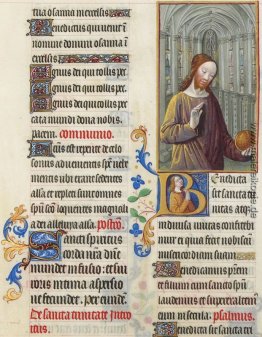 tua osanna in excelsis
Benedictus qui venit in
nomine domini osanna i
excelsis
Agnus dei qui tollis pec
Agnus dei qui tollis pec
Agnus dei qui tollis pec
cata mundi dona nobis
pacem. communio.
est repente de celo
sonus advenientis
mentis ubi erant sedentes
alla et repleti sunt omnes
loquentes magnali
a dei alleluya alla. postco
Sancti spiritus
corda
mundet infusio: et sui
roris intima aspersio
ne fecundet. per
De sancta trinitate Introi
itus.
Benedicta
sit sancta tri
nitas
indivisa unitas confitebi
mur ei quia fecit nobiscum
misericordiam suam
Benedicamus
et filium cum sancto
laudemus et superexaltem
eum in secula. psalmus.
Benedicta sit sancta tri